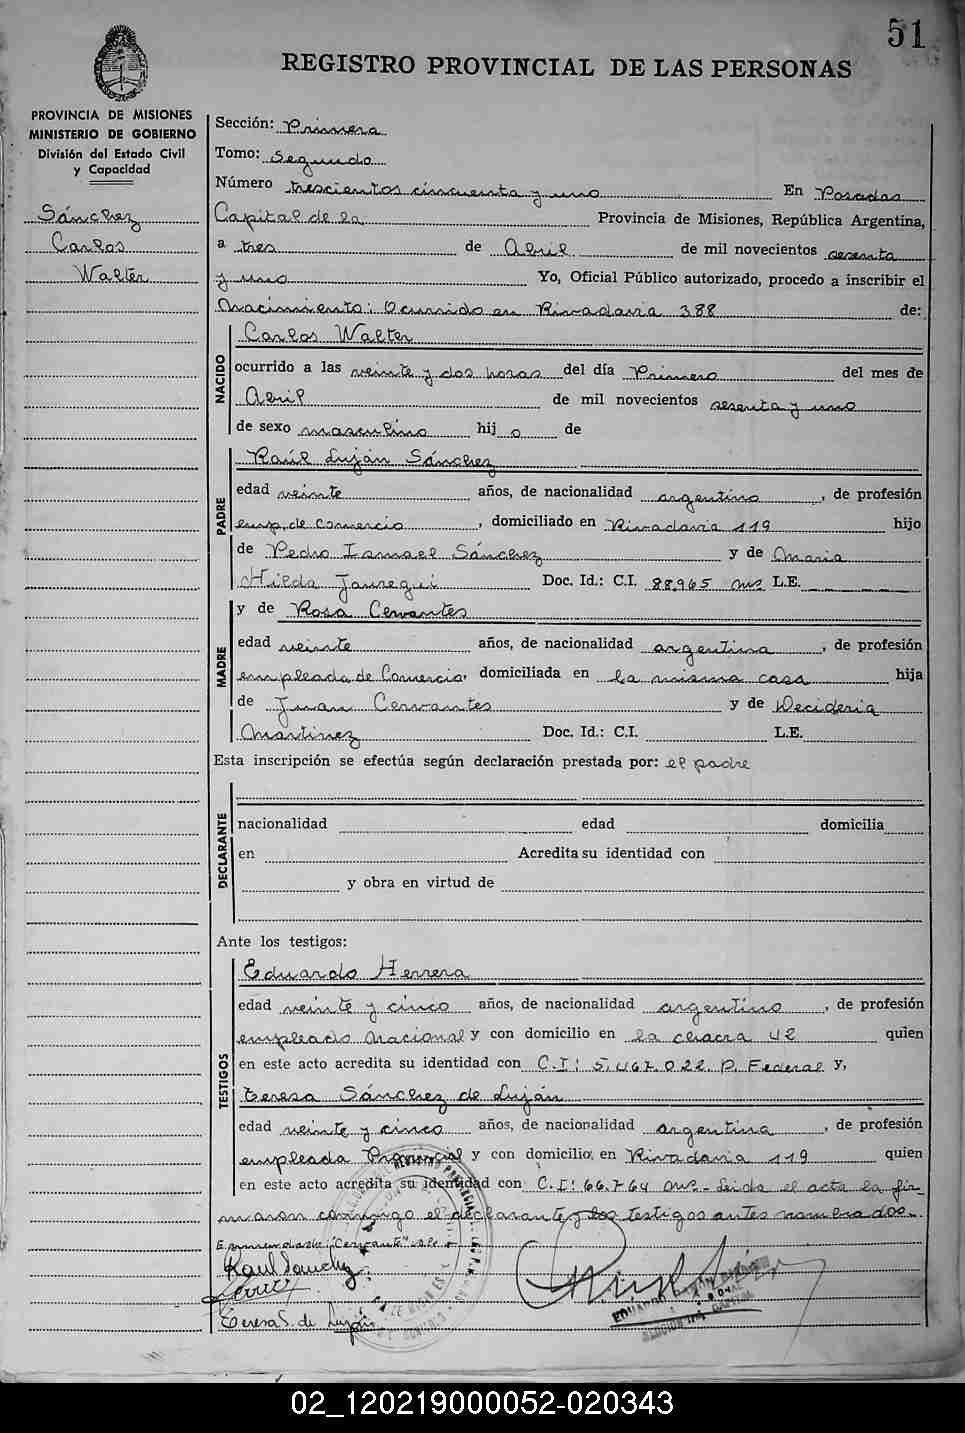 51
REGISTRO PROVINCIAL DE LAS PERSONAS
PROVINCIA DE MISIONES
MINISTERIO DE GOBIERNO
División del Estado Civil
y Capacidad
Sánchez
Carlos
Walter
Sección: Primera
Tomo: Segundo
Número trescientos cincuenta y uno En Posadas
Capital de la Provincia de Misiones, República Argentina,
a tres de Abril de mil novecientos sesenta
y uno Yo, Oficial Público autorizado, procedo a inscribir el
Nacimiento: Ocurrido en Rivadavia 388 de:
NACIDO
Carlos Walter
ocurrido a las veinte y dos horas del día Primero del mes de
Abril de mil novecientos sesenta y uno
de sexo masculino hijo de
PADRE
Raúl Luján Sánchez
edad veinte años, de nacionalidad argentino, de profesión
emp. de Comercio, domiciliado en Rivadavia 119 hijo
de Pedro Ismael Sánchez y de Maria
Hilda Jauregui Doc. Id.: C.I. 88,965 Mns L.E.
MADRE
y de Rosa Cervantes
edad veinte años, de nacionalidad argentina, de profesión
empleada de Comercio, domiciliada en la misma casa hija
de Juan Cervantes y de Decideria
Martinez Doc. Id.: C.I. L.E.
Esta inscripción se efectúa según declaración prestada por: el padre
DECLARANTE
nacionalidad edad domicilia
en Acredita su identidad con
y obra en virtud de
Ante los testigos:
TESTIGOS
Eduardo Herrera
edad veinte y cinco años, de nacionalidad argentino, de profesión
empleado Nacional y con domicilio en la chacra 42 quien
en este acto acredita su identidad con C.I: 5.467.022 P. Federal y,
Teresa Sánchez de Luján
edad veinte y cinco años, de nacionalidad argentina, de profesión
empleada Provincial y con domicilio en Rivadavia 119 quien
en este acto acredita su identidad con C.I: 66.764 Mns.- Leida el acta la fir-
maron conmigo el declarante y los testigos antes nombrados.-
Enmendado: "Cervante" vale
Raul Sanchez
Teresa S. de Luján
02_120219000052-020343